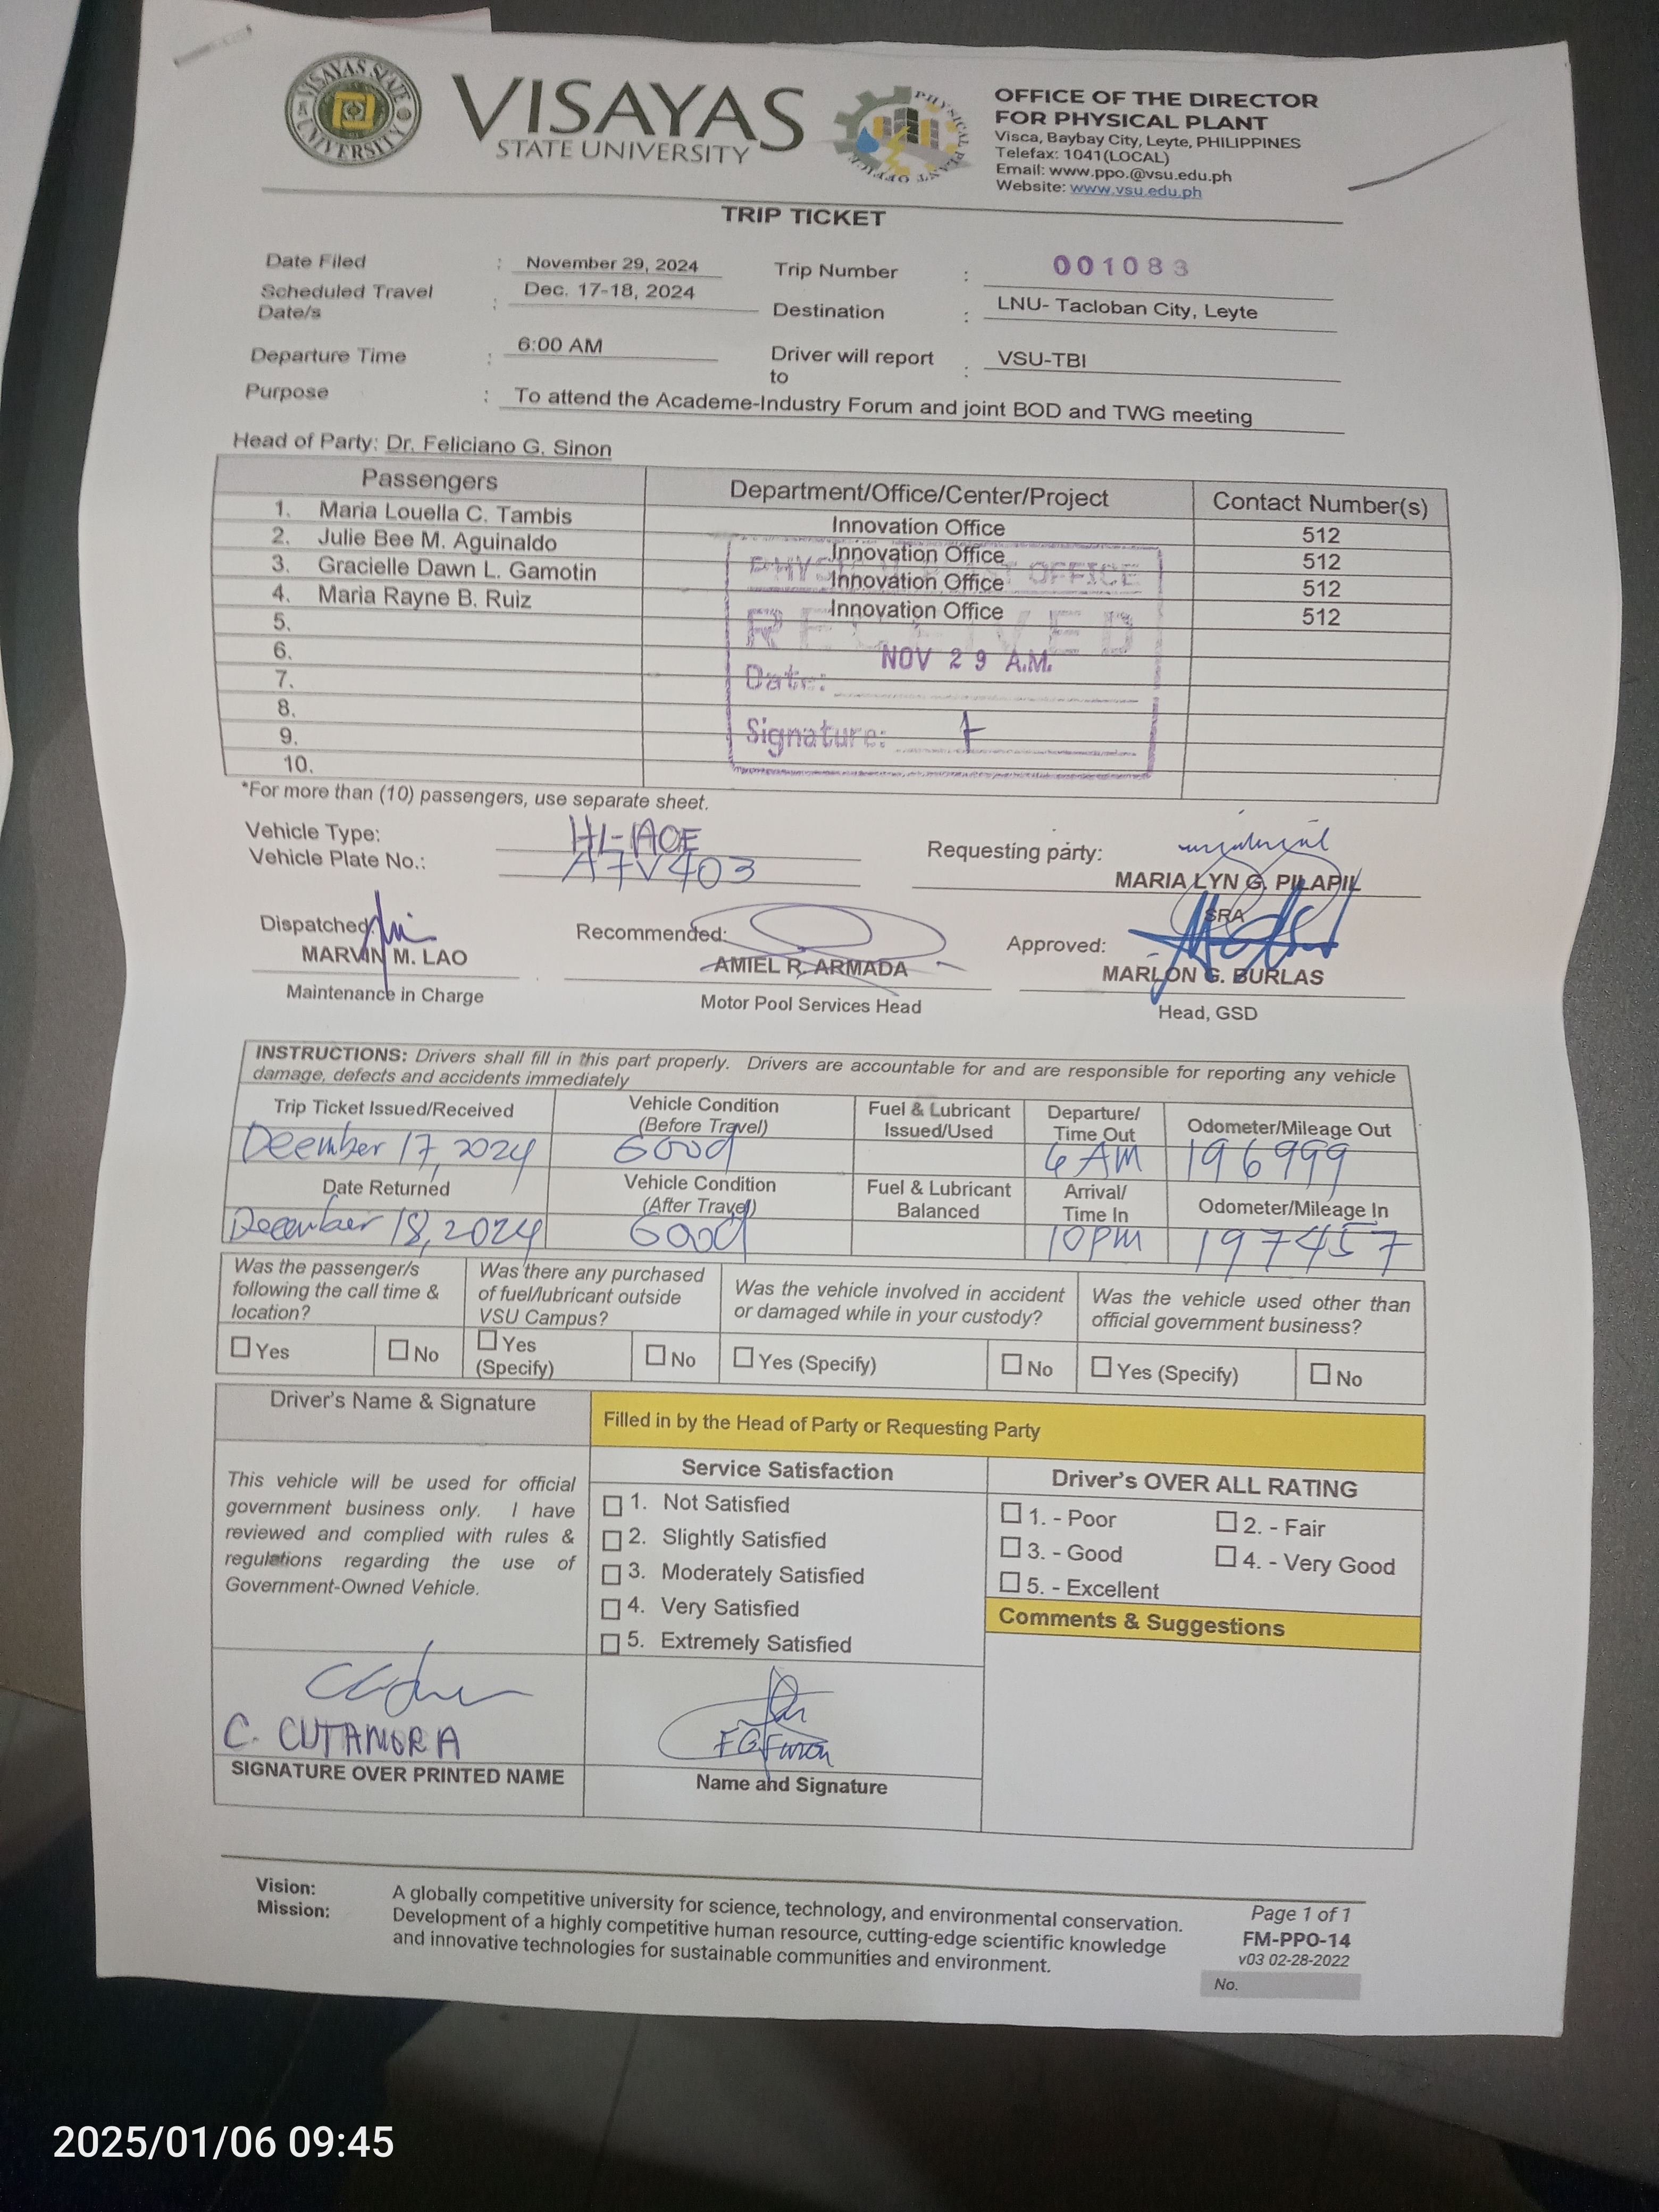 VISAYAS STATE UNIVERSITY
VISAYAS
STATE UNIVERSITY
PHYSICAL PLANT OFFICE
OFFICE OF THE DIRECTOR
FOR PHYSICAL PLANT
Visca, Baybay City, Leyte, PHILIPPINES
Telefax: 1041(LOCAL)
Email: www.ppo.@vsu.edu.ph
Website: www.vsu.edu.ph
TRIP TICKET
Date Filed : November 29, 2024 Trip Number : 001083
Scheduled Travel Date/s : Dec. 17-18, 2024 Destination : LNU- Tacloban City, Leyte
Departure Time : 6:00 AM Driver will report to : VSU-TBI
Purpose : To attend the Academe-Industry Forum and joint BOD and TWG meeting
Head of Party: Dr. Feliciano G. Sinon
Passengers Department/Office/Center/Project Contact Number(s)
1. Maria Louella C. Tambis Innovation Office 512
2. Julie Bee M. Aguinaldo Innovation Office 512
3. Gracielle Dawn L. Gamotin Innovation Office 512
4. Maria Rayne B. Ruiz Innovation Office 512
5.
6.
7.
8.
9.
10.
PHYSICAL PLANT OFFICE
RECEIVED
Date: NOV 29 A.M.
Signature:
*For more than (10) passengers, use separate sheet.
Vehicle Type: HI-IACE
Vehicle Plate No.: A7V403
Requesting party:
MARIA LYN G. PILAPIL
SRA
Dispatched:
MARVIN M. LAO
Maintenance in Charge
Recommended:
AMIEL R. ARMADA
Motor Pool Services Head
Approved:
MARLON G. BURLAS
Head, GSD
INSTRUCTIONS: Drivers shall fill in this part properly. Drivers are accountable for and are responsible for reporting any vehicle
damage, defects and accidents immediately
Trip Ticket Issued/Received Vehicle Condition (Before Travel) Fuel & Lubricant Issued/Used Departure/ Time Out Odometer/Mileage Out
Deember 17, 2024 Good 6 AM 196999
Date Returned Vehicle Condition (After Travel) Fuel & Lubricant Balanced Arrival/ Time In Odometer/Mileage In
December 18, 2024 Good 10PM 197457
Was the passenger/s following the call time & location?
Was there any purchased of fuel/lubricant outside VSU Campus?
Was the vehicle involved in accident or damaged while in your custody?
Was the vehicle used other than official government business?
☐ Yes ☐ No ☐ Yes (Specify) ☐ No ☐ Yes (Specify) ☐ No ☐ Yes (Specify) ☐ No
Driver's Name & Signature
Filled in by the Head of Party or Requesting Party
This vehicle will be used for official
government business only. I have
reviewed and complied with rules &
regulations regarding the use of
Government-Owned Vehicle.
Service Satisfaction
☐ 1. Not Satisfied
☐ 2. Slightly Satisfied
☐ 3. Moderately Satisfied
☐ 4. Very Satisfied
☐ 5. Extremely Satisfied
Driver's OVER ALL RATING
☐ 1. - Poor ☐ 2. - Fair
☐ 3. - Good ☐ 4. - Very Good
☐ 5. - Excellent
Comments & Suggestions
C. CUTAMORA
SIGNATURE OVER PRINTED NAME
Name and Signature
Vision: A globally competitive university for science, technology, and environmental conservation.
Mission: Development of a highly competitive human resource, cutting-edge scientific knowledge
and innovative technologies for sustainable communities and environment.
Page 1 of 1
FM-PPO-14
v03 02-28-2022
No.
2025/01/06 09:45